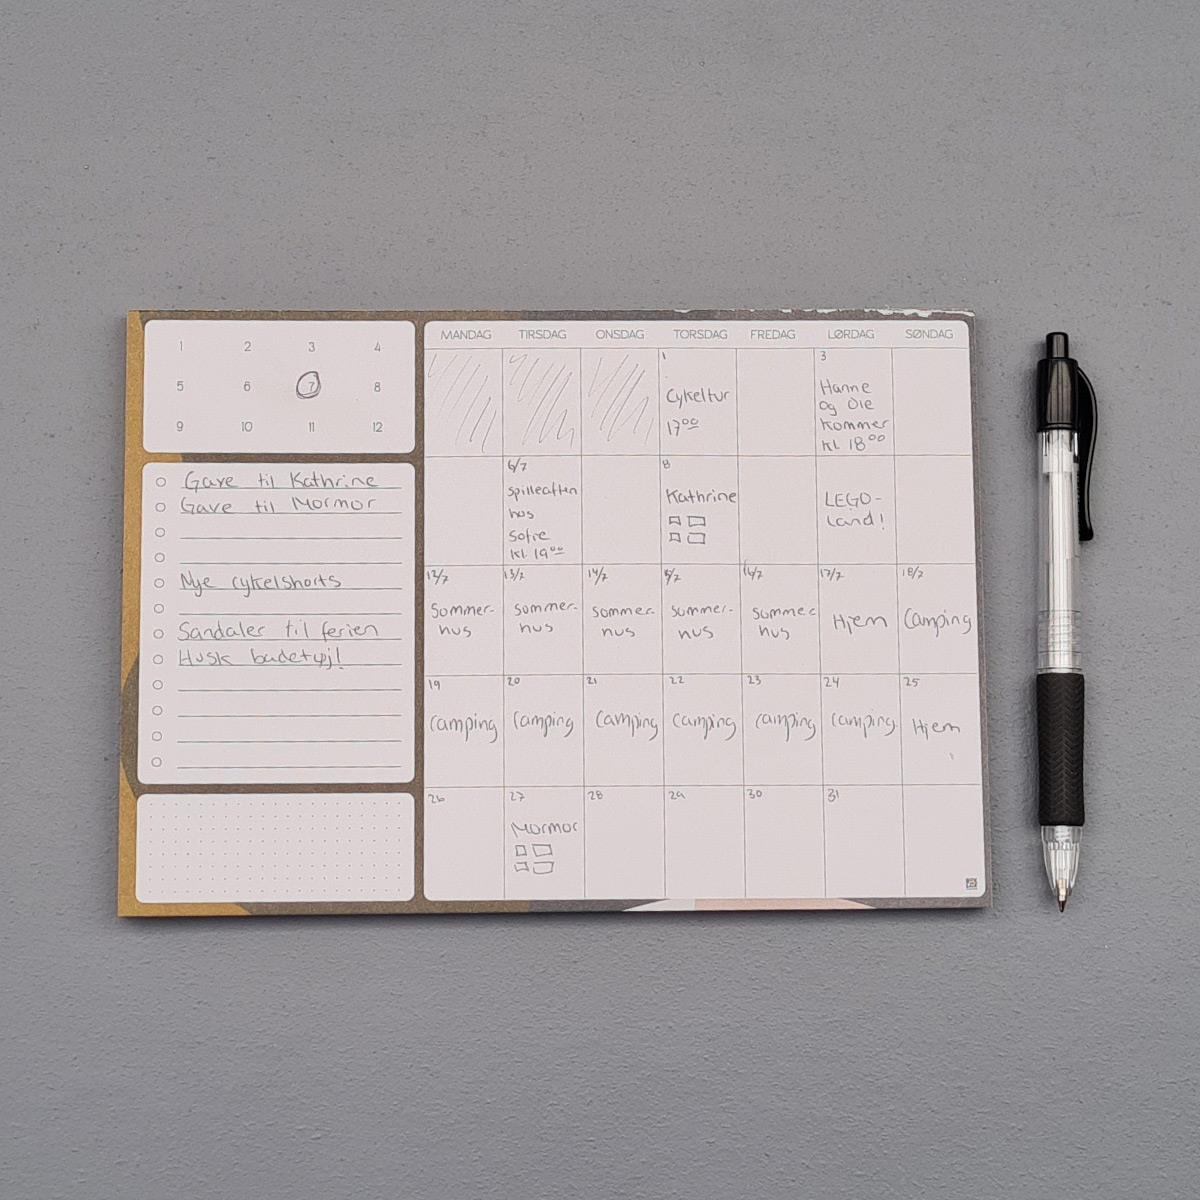 1 2 3 4
5 6 7 8
9 10 11 12
Gave til Kathrine
Gave til Mormor
Nye cykelshorts
Sandaler til ferien
Husk badetøj!
MANDAG TIRSDAG ONSDAG TORSDAG FREDAG LØRDAG SØNDAG
1
Cykeltur
17⁰⁰
3
Hanne
og Ole
kommer
kl. 18⁰⁰
6/7
Spilleaften
hos
Sofie
kl. 19⁰⁰
8
Kathrine
LEGO-
land!
12/7
Sommer-
hus
13/7
Sommer-
hus
14/7
Sommer-
hus
15/7
Sommer-
hus
16/7
Sommer
hus
17/7
Hjem
18/7
Camping
19
Camping
20
Camping
21
Camping
22
Camping
23
Camping
24
Camping
25
Hjem
26
27
Mormor
28
29
30
31